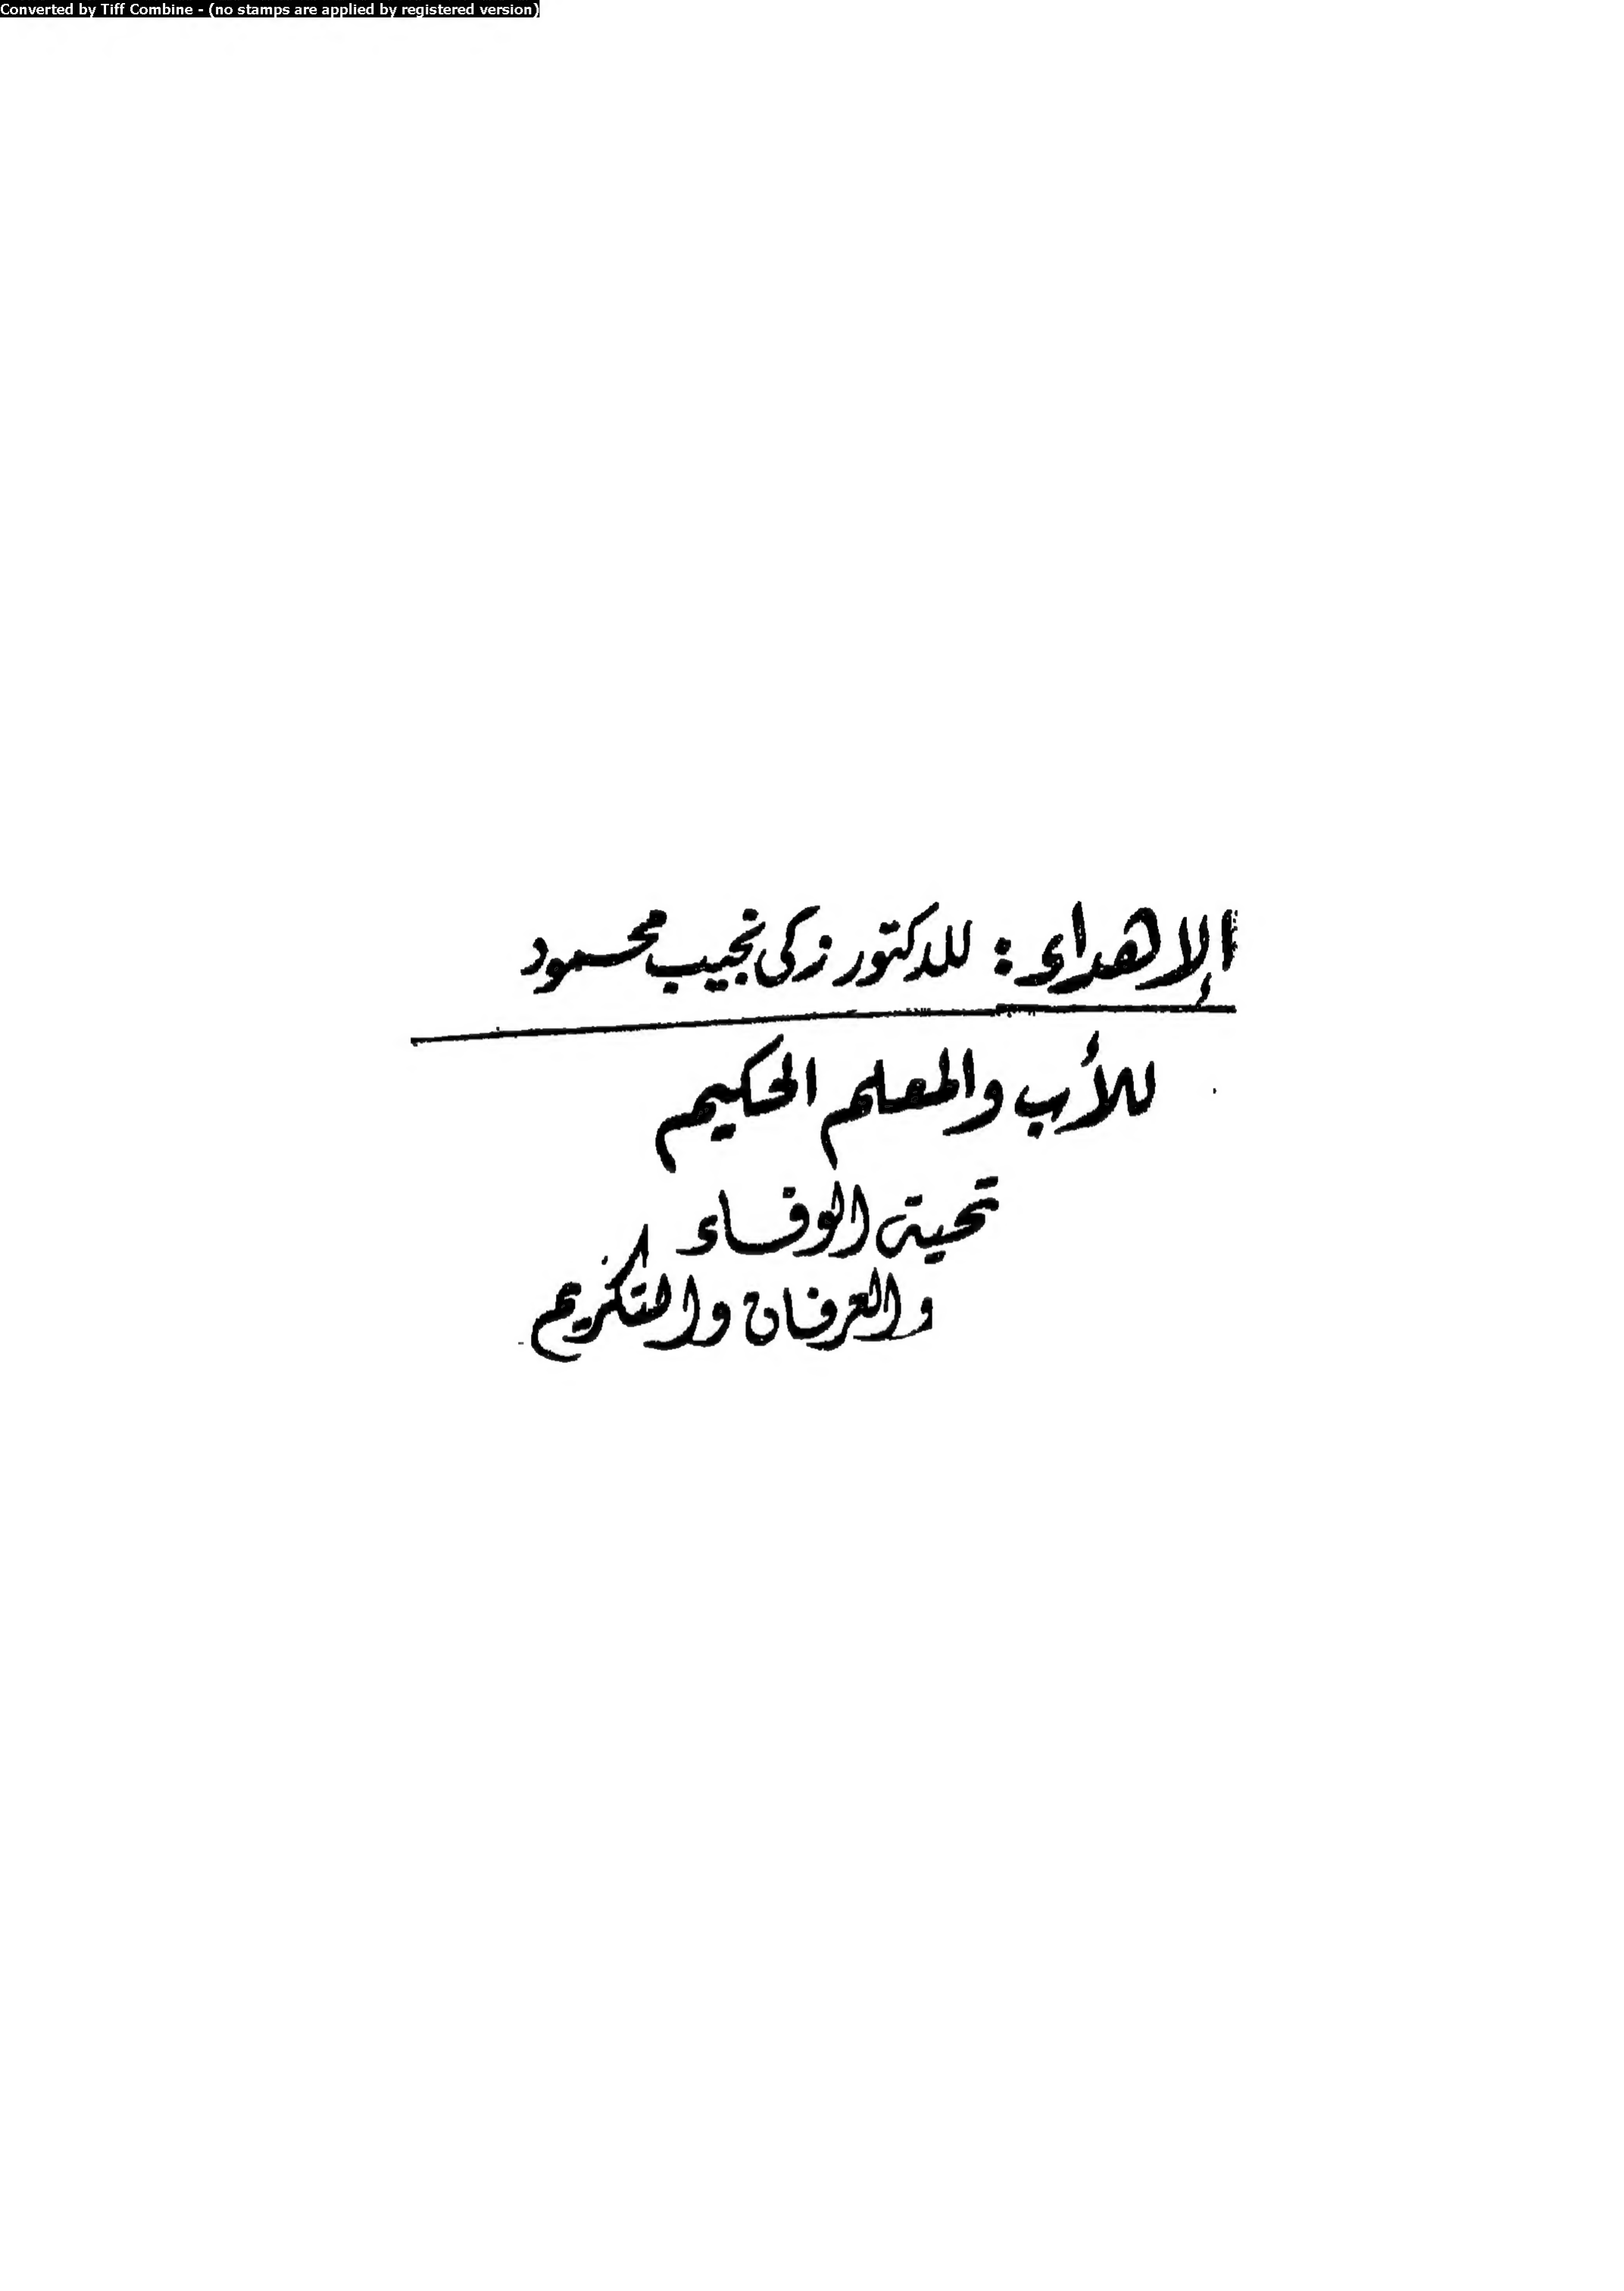 Converted by Tiff Combine - (no stamps are applied by registered version)
الإهداء : للدكتور زكى نجيب محمود
للأب والمعلم الحكيم
تحية الوفاء
والعرفان والتكريم